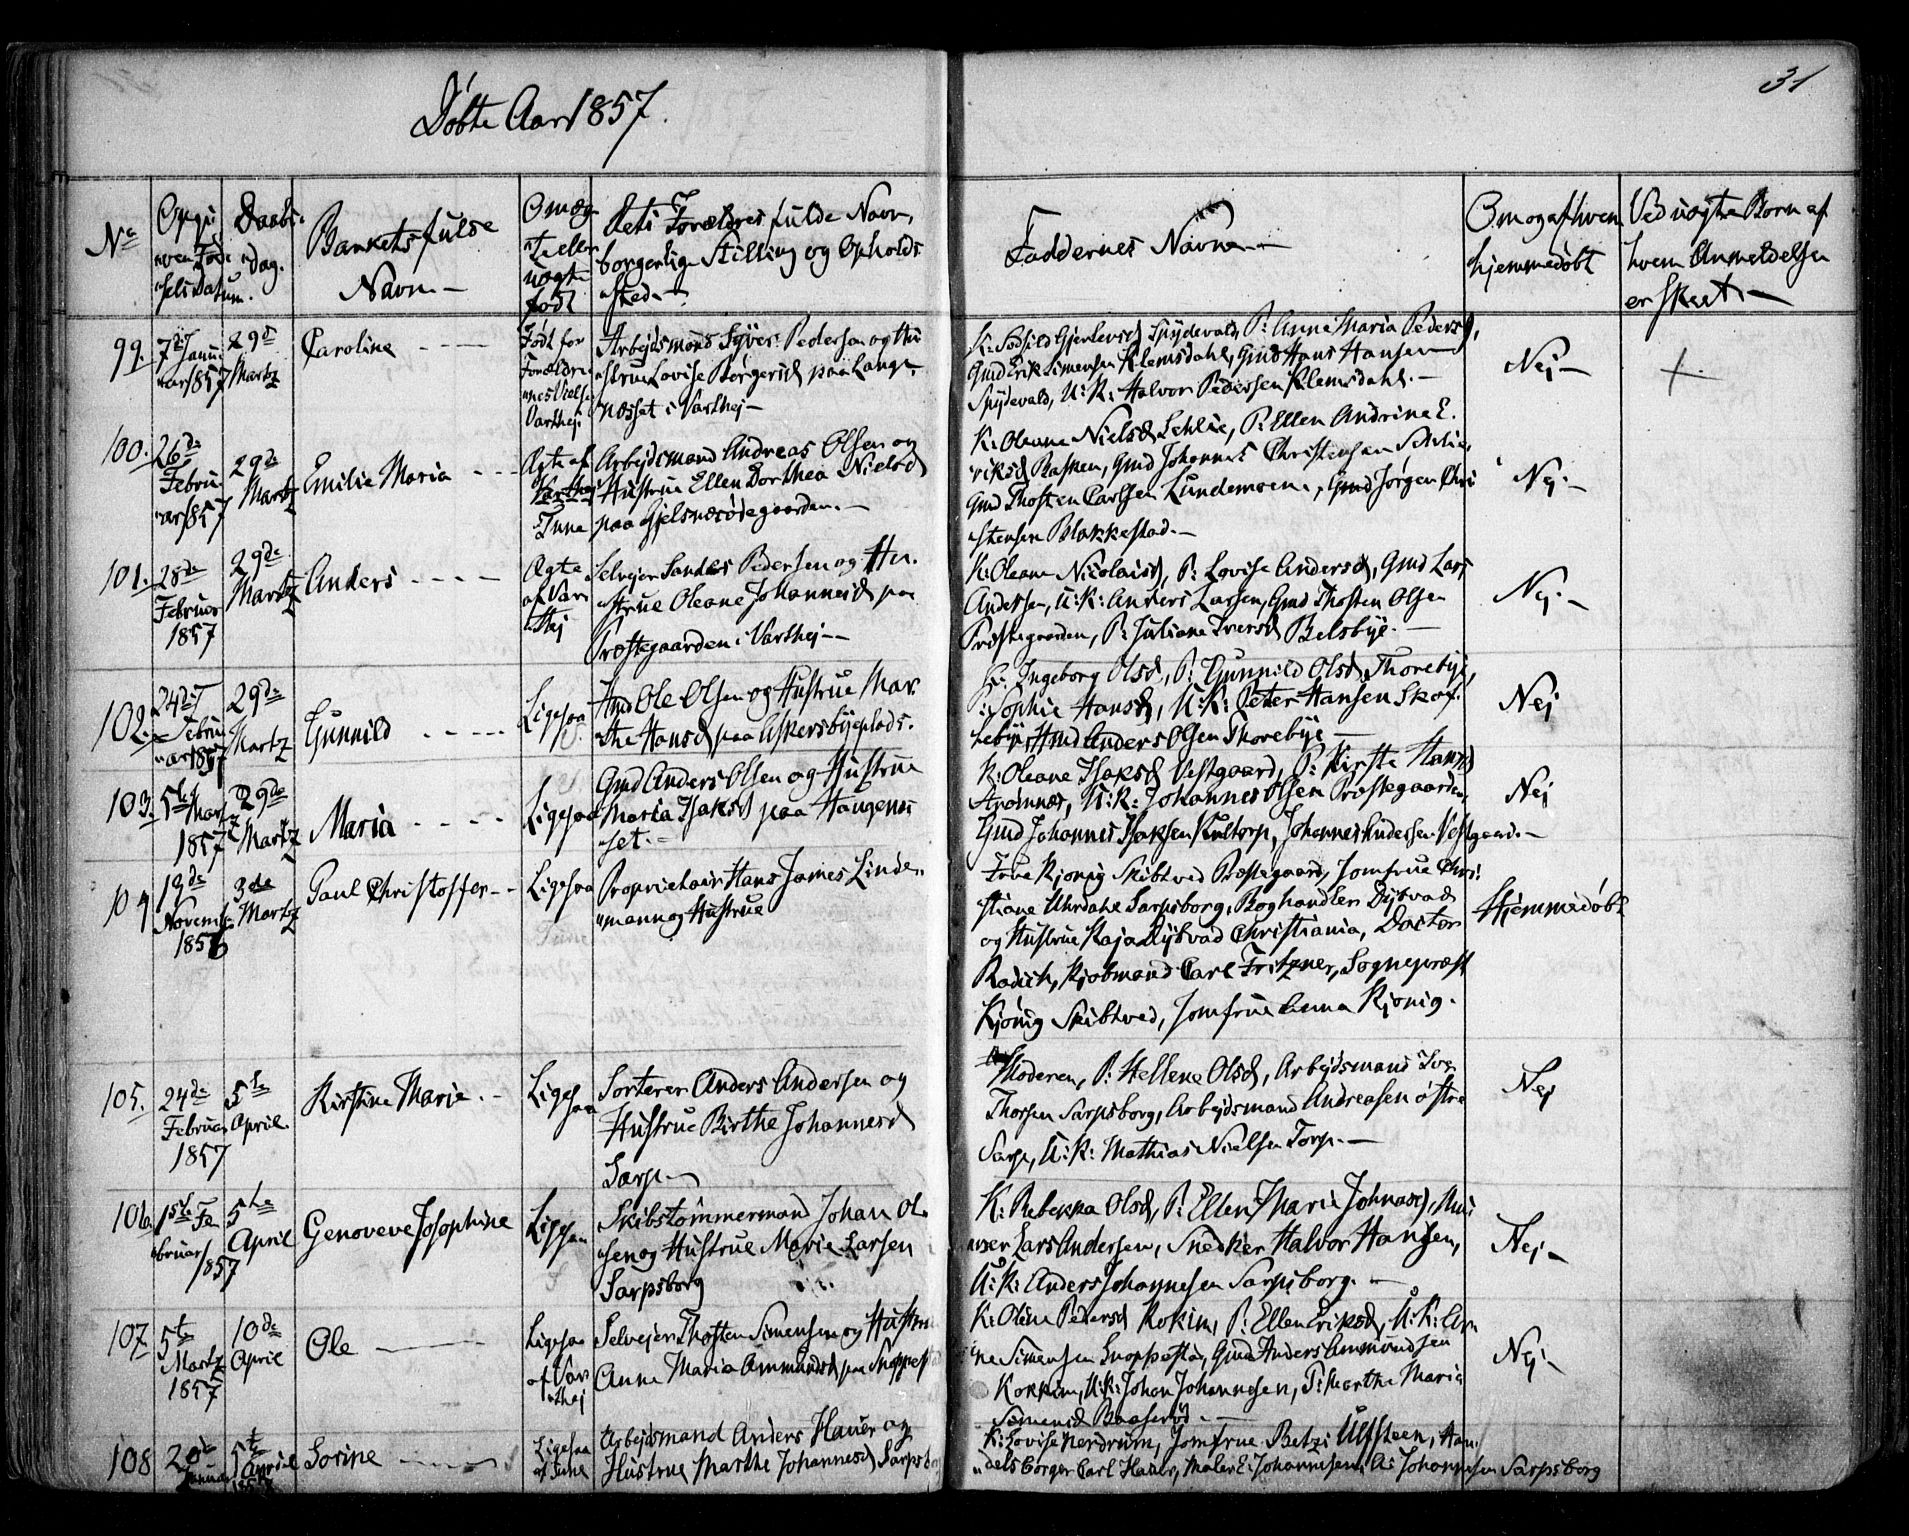 Døbte Aar 1857.
31
No
Opgi
"ven Fød
"sels Datum.
Daabs-
"Dag.
Barnets fulde
Navn
Om æg
"te eller
uægte
født
Dets Forældres fulde Navn,
borgerlige Stilling og Opholds
"sted.
Faddernes Navne
Om og af hvem
hjemmedøbt
Ved uægte Børn af
hvem Anmeldelsen
er skeet.
99.
7de Janu
"ar 1857
29d
Martz
Caroline
Født for
Forældre
"nes Vielse
Varthej.
Arbejdsmand Syver Pedersen og Hu
"strue Lovise Børgersd paa Lange
"næsset i Varthej
Spydevald, P: Anne Maria Pedersd,
Gmd Erik Simensen Klemsdahl, Gmd Hans Hansen
Spydevald, U: K: Halvor Pedersen Klemsdahl.
Nej
+
100.
26de
Febru
"ar 1857
29de
Martz
Emilie Maria
Ægte af
Tune
Arbejdsmand Andreas Olsen og
Hustrue Ellen Dorthea Nielsd
paa Gjelsnæsødegaarden.
K: Oleane Nielsd Lehlie, P: Ellen Andrine E.
"riksd Bakken, Gmd Johannes Christensen
Gmd Thosten Carlsen Lundemoen, Gmd Jørgen Chri
"stensen Blakkestad.
Nej.
101.
28de
Februar
1857
29de
Martz
Anders
Ægte
af Var
"thej
Selvejer Pedersen og Hu.
"strue Oleane Johannesd paa
Præstegaarden i Varthej
K: Oleane Nicolaisd, P: Lovise Andersd, Gmd Lars
Andersen, U: K: Anders Larsen, Gmd Thosten Olsen
Præstegaarden, P: Juliane Iversd Belsbye.
Nej.
102.
24de
Febru
"ar 1857
29de
Martz
Gunnild
Ligesaa
Gmd Ole Olsen og Hustrue Mar.
"the Hansd paa Askersbyeplads.
K: Ingeborg Olsd, P: Gunnild Olsd Thorebye,
P: Sophie Hansd, U: K: Peter Hansen
Gmd Anders Olsen Thorebye
Nej
103.
5te Martz
1857
29de
Martz
Maria
Ligesaa
Gmd Anders Olsen og Hustrue
Maria Isaksd paa Haugenes
"set.
K: Oleane Isaksd Vestgaard, P: Kirste Hansd
Strømnæs, U: K: Johannes Olsen Præstegaarden,
Gmd Johannes Isaksen Kultorp, Johannes Andersen Vestgaard.
Nej
104
19de
Novemb.
1856
3de
Martz
Paul Christoffer
Ligesaa
Proprietair Hans James Linde
"mann og Hustrue
Frue Kjønig Skibtved Præstegaard, Jomfrue Chri.
"stiane Uhrdahl Sarpsborg, Boghandler Dybvad
og Hustrue Kaja Dybvad Christiania, Doctor
Radich, Kjøbmand Carl Fritzner, Sognepræst
Kjönig Skibtved, Jomfrue Anna Kjønig.
Hjemmedøbt
105.
24de
Februar
1857
5te
April
Kirstine Marie
Ligesaa
Sorterer Anders Andersen og
Hustrue Birthe Johannesd
Sarp
Moderen, P: Hellene Olsd, Arbejdsmand
Thorsen Sarpsborg, Arbejdsmand Andreasen østre
Sarp, U: K: Mathias Nielsen Torp.
Nej
106.
1ste Fe
"bruar 1857
5te
April
Genoveve Josophine
Ligesaa
Skibstømmermand Johan Ol
"sen og Hustrue Marie Larsen
Sarpsborg
K: Rebekka Olsd, P: Ellen Marie Johnasd, Mu
"rer Lars Andersen, Snedker Halvor Hansen,
U: K: Anders Johannesen Sarpsborg.
Nej
107.
5te
Martz
1857
10de
April
Ole
Ligesaa
af Var
"thej
Selvejer Thosten Simensen og Hustrue
Anne Maria Ammundsd paa
K: Oline Pedersd Kokim, P: Ellen Eriksd, U: K: Ar
"ne Simensen Gmd Anders Ammundsen
Kokkim, U: K: Johan Johannesen, P: Marthe Maria
Simensd
Nej
108
20de
Januar
5te
April
Sorine
Ligesaa
af Tune
Arbejdsmand Anders Hauer og
Hustrue Marthe Johannesd Sarpsborg
K: Lovise Nerdrum, Jomfrue Betzi Ulfsteen, Han
"delsborger Carl Hauer, Maler E: Johannesen, A: Johannesen Sarpsborg